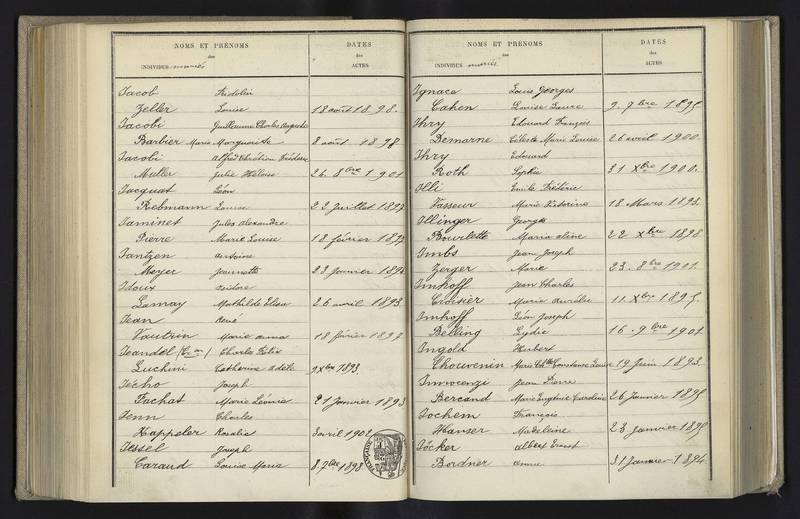 NOMS ET PRÉNOMS DATES
des des
INDIVIDUS mariés ACTES
Jacob Fridolin
Zeller Louise 18 août 1898.
Jacobi Guillaume Charles Auguste
Barbier Marie Marguerite 8 août 1898
Jacobi Alfred Chrétien Frédéric
Muller Julie Héloïse 26. 8bre 1901
Jacquat Léon
Rebmann Louise 22 Juillet 1897
Jaminet Jules Alexandre
Pierre Marie Louise 18 février 1897
Jantzen Antoine
Meyer Jeannette 23 Janvier 1892
Idoux Isidore
Lamay Mathilde Elisa 26 avril 1893
Jean René
Vautrin Marie Anna 18 février 1897
Jeandel Charles Félix
Luchini Catherine Adèle 9 Xbre 1893
Jecho Joseph
Fachat Marie Léonie 21 Janvier 1893
Jenn Charles
Happeler Rosalie 3 avril 1902
Jessel Joseph
Caraud Louise Maria 8. 7bre 1898
NOMS ET PRÉNOMS DATES
des des
INDIVIDUS mariés ACTES
Ignace Louis Georges
Cahen Louise Laure 9. 9bre 1895
Ihry Edouard François
Demarne Céleste Marie Louise 26 avril 1900.
Ihry Edouard
Roth Sophie 31 Xbre 1900.
Illi Emile Frédéric
Vasseur Marie Victorine 18. Mars 1893.
Illinger Georges
Bourlette Maria Aline 22 Xbre 1898
Imbs Jean Joseph
Zerger Marie 23. 8bre 1901.
Imhoff Jean Charles
Croisier Marie Aurélie 11 Xbre 1895.
Imhoff Léon Joseph
Belling Lydie 16. 9bre 1901.
Ingold Hubert
Chouvenin Marie Chtte Constance Louise 19 Juin 1893.
Innocenzi Jean Pierre
Bercand Marie Eugénie Caroline 26 Janvier 1895
Jochem François
Hanser Madeleine 23 Janvier 1895
Jöcker Albert Ernest
Bordner Anna 31 Janvier 1894.